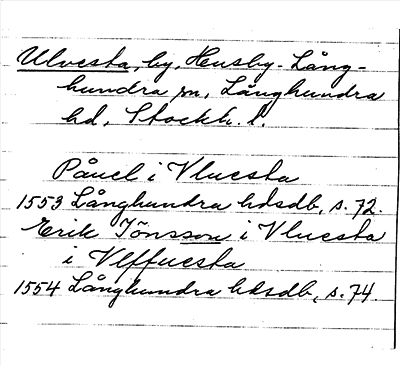 Ulvesta, by, Husby-Lång-
hundra sn, Långhundra
hd, Stockh. l.
Påuel i Vluesta
1553 Långhundra hdsdb, s. 72.
Erik Jönsson i Vluesta
i Vlffuesta
1554 Långhundra hdsdb, s. 74.